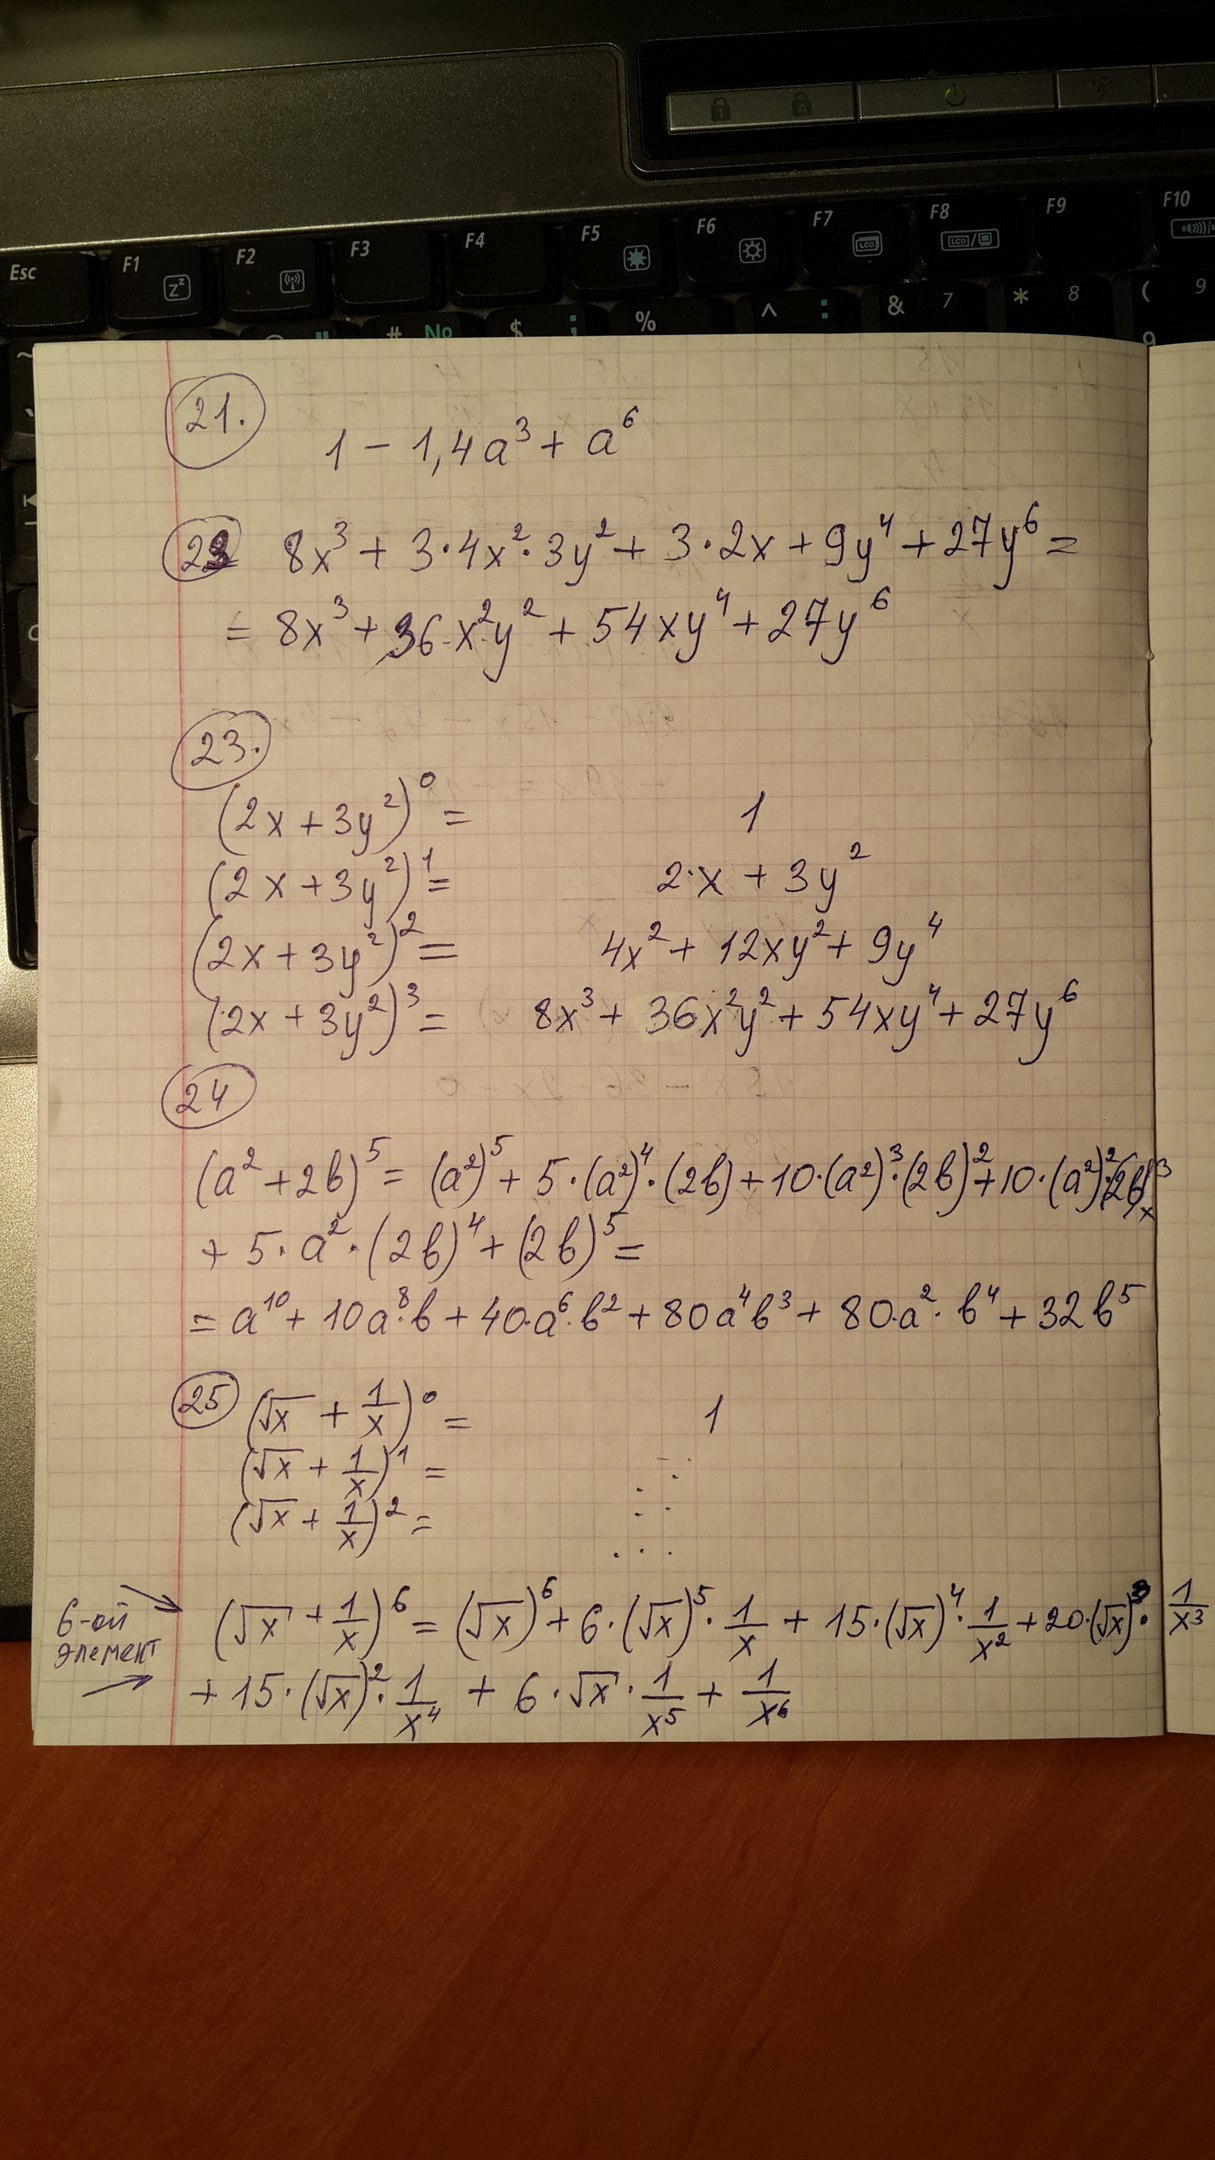 Esc F1 F2 F3 F4 F5 F6 F7 F8 F9 F10
LCD LCD
# № $ ; % ^ : & 7 * 8 ( 9
21.
1 - 1,4a³ + a⁶
22 8x³ + 3·4x²·3y² + 3·2x + 9y⁴ + 27y⁶ =
= 8x³ + 36·x²·y² + 54xy⁴ + 27y⁶
23.
(2x + 3y²)⁰ = 1
(2x + 3y²)¹ = 2·x + 3y²
(2x + 3y²)² = 4x² + 12xy² + 9y⁴
(2x + 3y²)³ = 8x³ + 36x²y² + 54xy⁴ + 27y⁶
24
(a² + 2b)⁵ = (a²)⁵ + 5·(a²)⁴·(2b) + 10·(a²)³·(2b)² + 10·(a²)²·(2b)³
+ 5·a²·(2b)⁴ + (2b)⁵ =
= a¹⁰ + 10a⁸·b + 40·a⁶·b² + 80a⁴b³ + 80·a²·b⁴ + 32b⁵
25 (√x + 1/x)⁰ = 1
(√x + 1/x)¹ =
(√x + 1/x)² =
6-ой
элемент
(√x + 1/x)⁶ = (√x)⁶ + 6·(√x)⁵·1/x + 15·(√x)⁴·1/x² + 20·(√x)³·1/x³
+ 15·(√x)²·1/x⁴ + 6·√x·1/x⁵ + 1/x⁶